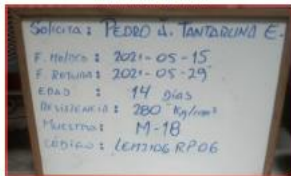 Solicita : PEDRO A. TANTARUNO E.
F. Moldeo : 2021-05-15
F. ROTURA : 2021-05-29
EDAD : 14 Días
RESISTENCIA : 280 Kg/cm²
Muestra : M-18
CÓDIGO : LEM2106 RP06